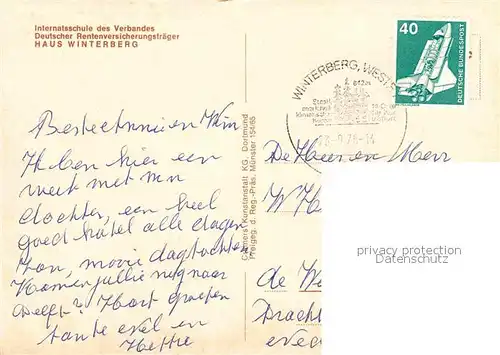 Internatsschule des Verbandes
Deutscher Rentenversicherungsträger
HAUS WINTERBERG
40
DEUTSCHE BUNDESPOST
WINTERBERG, WESTF
Beste Annie en Wim
Ik ben hier een
week met mn
dochter, een heel
goed hotel alle dagen
zon, mooie dagtochten
Komen jullie nog naar
Delft? Hart groeten
tante en
Hettie
Cramers Kunstanstalt KG, Dortmund
Freigeg. d. Reg.-Präs. Münster 154/65
De Heer en Mevr
W
de We
Dracht
privacy protection
Datenschutz